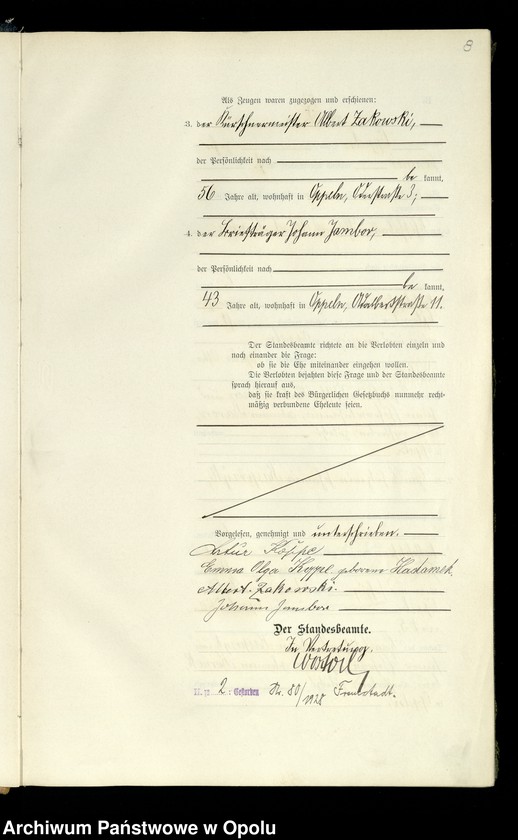 8
Als Zeugen waren zugezogen und erschienen:
3. der Kürschnermeister Albert Zakowski,
der Persönlichkeit nach
be kannt,
56 Jahre alt, wohnhaft in Oppeln, Oderstraße 3;
4. der Briefträger Johann Jambor,
der Persönlichkeit nach
be kannt,
43 Jahre alt, wohnhaft in Oppeln, Adalbertstraße 11.
Der Standesbeamte richtete an die Verlobten einzeln und
nach einander die Frage:
ob sie die Ehe miteinander eingehen wollen.
Die Verlobten bejahten diese Frage und der Standesbeamte
sprach hierauf aus,
daß sie kraft des Bürgerlichen Gesetzbuchs nunmehr recht-
mäßig verbundene Eheleute seien.
Vorgelesen, genehmigt und unterschrieben.
Artur Koppe
Emma Olga Koppe geborene Hadamek.
Albert Zakowski.
Johann Jambor
Der Standesbeamte.
In Vertretung.
2: Gestorben Nr. 80/1928 Fraustadt.
Archiwum Państwowe w Opolu